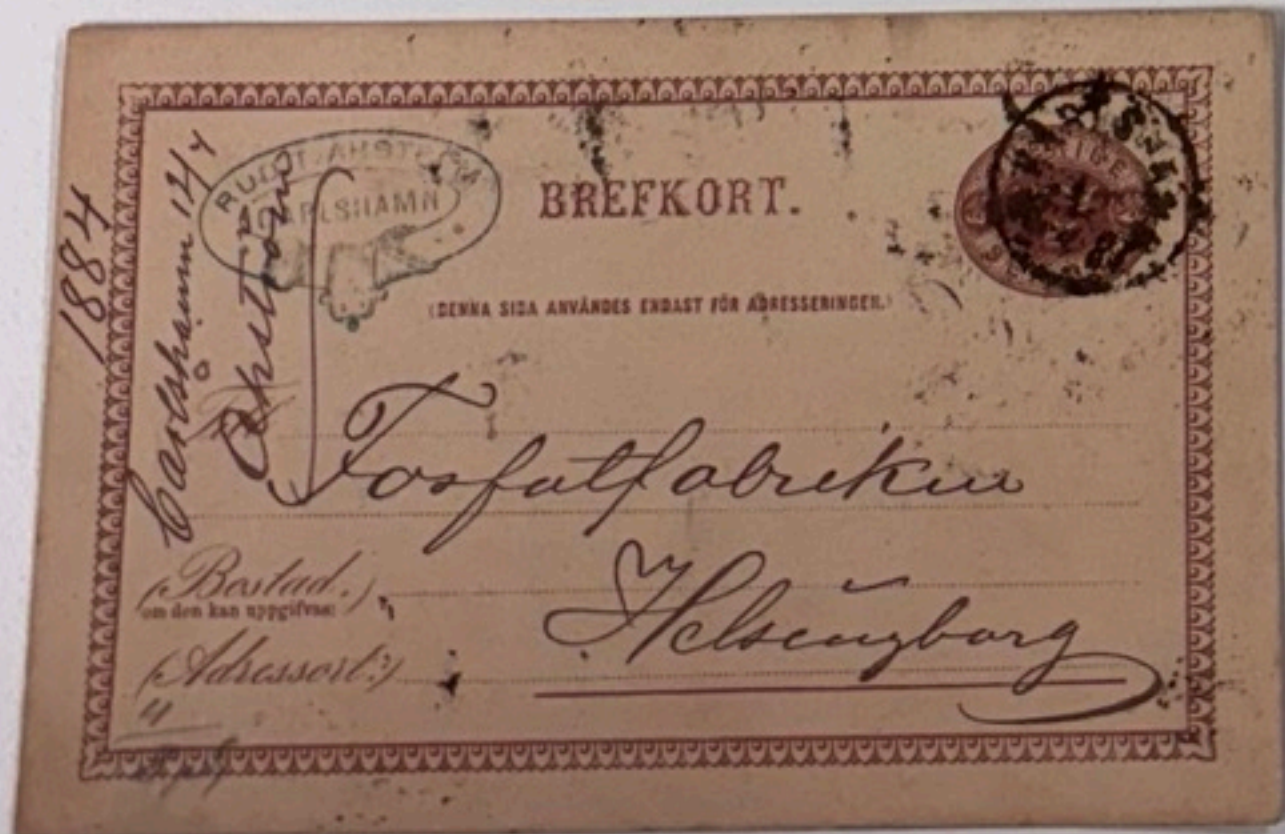 1884
Carlshamn 14/4
Ahström
RUDOLF AHSTRÖM
CARLSHAMN
BREFKORT.
(DENNA SIDA ANVÄNDES ENDAST FÖR ADRESSERINGEN.)
SVERIGE
Fosfatfabriken
(Bostad.)
om den kan uppgifvas:
Helsingborg
(Adressort:)